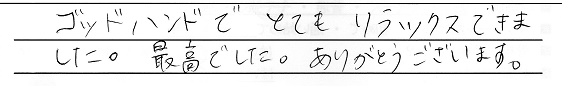 ゴッドハンドで とても リラックスできま
した。 最高でした。 ありがとうございます。